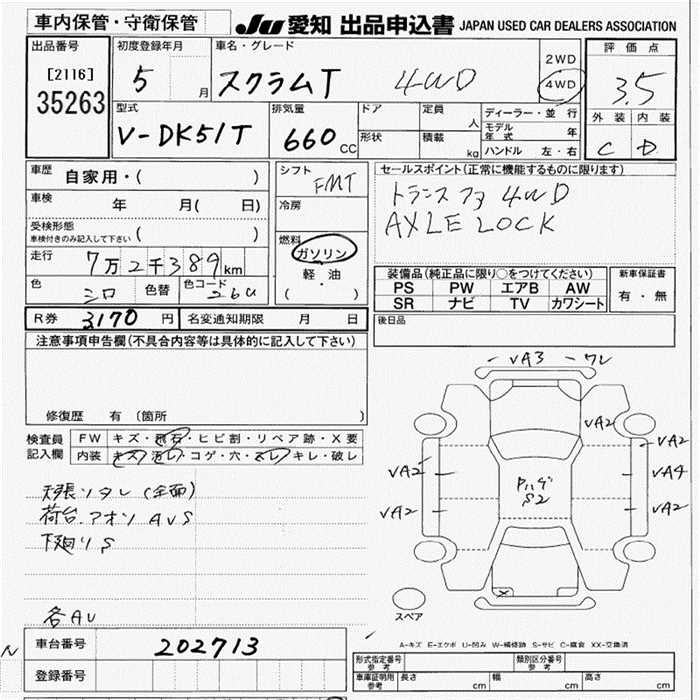 車内保管・守衛保管
JU 愛知 出品申込書 JAPAN USED CAR DEALERS ASSOCIATION
出品番号
[2116]
35263
初度登録年月
5 月
車名・グレード
スクラムT 4WD
2WD
4WD
評価点
3.5
外装 内装
C D
型式
V-DK51T
排気量
660 CC
ドア
形状
定員
人
積載
kg
ディーラー・並行
モデル年式 年
ハンドル 左・右
車歴 自家用・( )
車検 年 月( 日)
受検形態
車検付きのみ記入して下さい ( )
走行 7万2千389km
色 シロ 色替 色コード 26U
シフト
FMT
冷房
燃料
ガソリン
軽・油
( )
セールスポイント(正常に機能するものに限ります)
トランスファ 4WD
AXLE LOCK
装備品(純正品に限り○をつけてください)
PS PW エアB AW
SR ナビ TV カワシート
新車保証書
有・無
R券 3,170 円 名変通知期限 月 日
後日品
注意事項申告欄(不具合内容等は具体的に記入して下さい)
修復歴 有 (箇所 )
検査員
記入欄
FW キズ・飛石・ヒビ割・リペア跡・X要
内装 キズ・汚レ・コゲ・穴・スレ・キレ・破レ
天張リタレ(全面)
荷台.アオリ AUS
下廻リS
各AU
-VA3 -ワレ
VA2
VA2
VA2
VA4
VA2
VA2
Pハゲ
S2
X
スペア
A-キズ E-エクボ U-凹み W-補修跡 S-サビ C-腐食 XX-交換済
N
車台番号 202713
登録番号
形式指定番号
参考
類別区分番号
参考
車庫証明用
参考
長さ cm 幅 cm 高さ cm